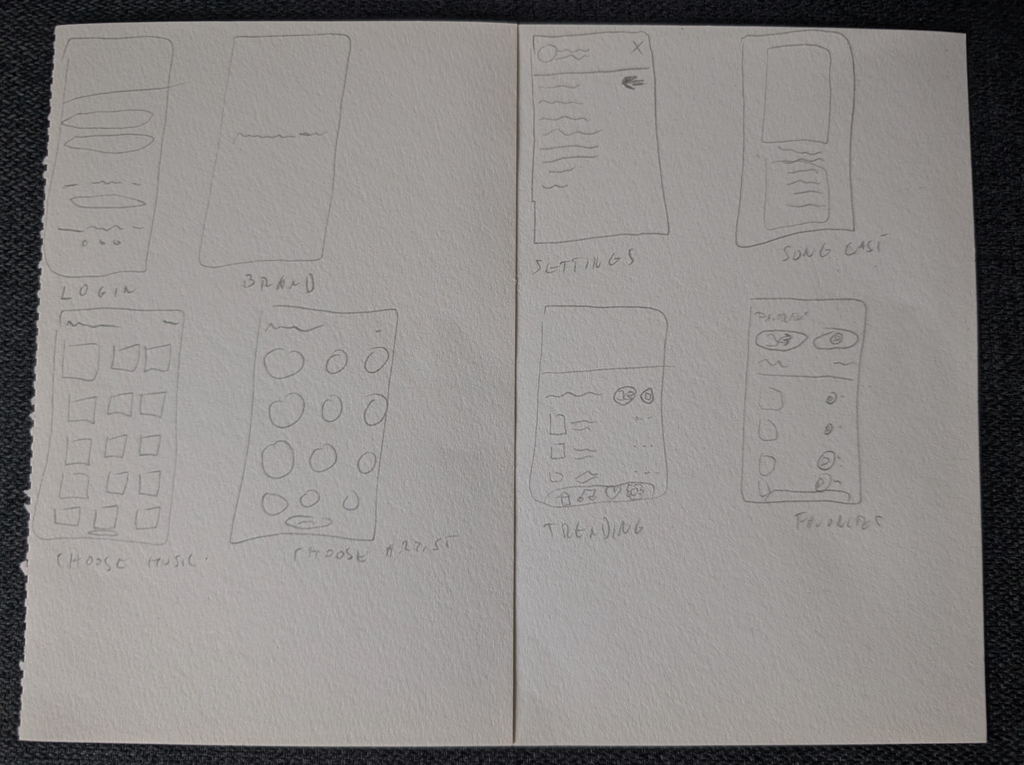 LOGIN
BRAND
CHOOSE MUSIC.
CHOOSE ARTIST
SETTINGS
SONG CAST
TRENDING
FAVORITES